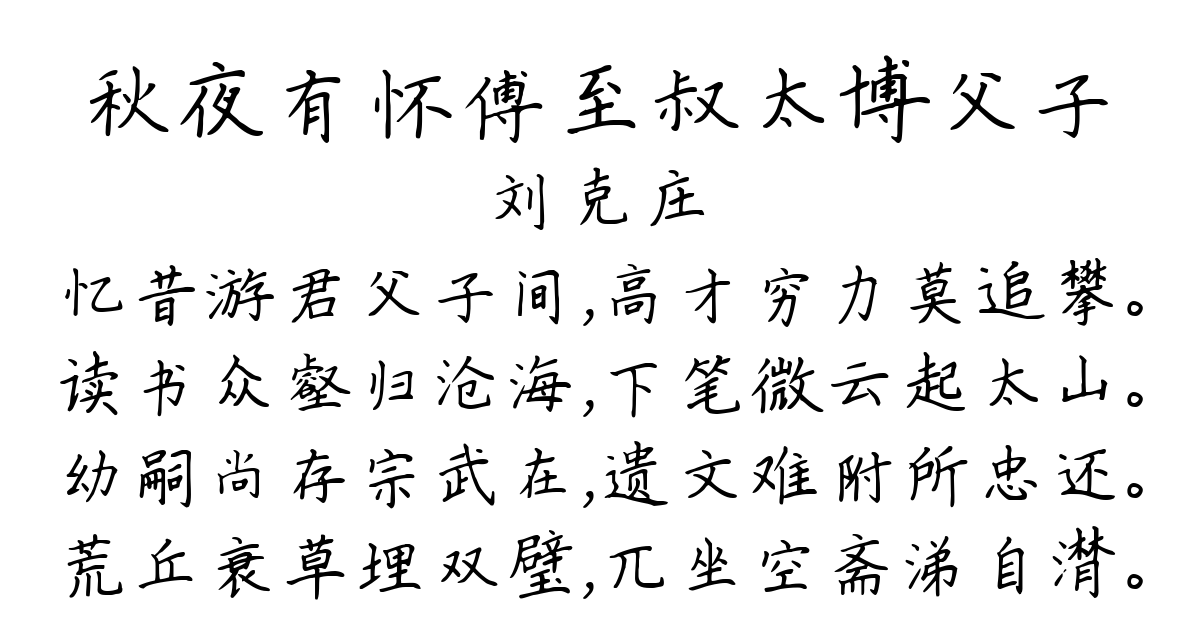 秋夜有怀傅至叔太博父子
刘克庄
忆昔游君父子间,高才穷力莫追攀。
读书众壑归沧海,下笔微云起太山。
幼嗣尚存宗武在,遗文难附所忠还。
荒丘衰草埋双璧,兀坐空斋涕自潸。